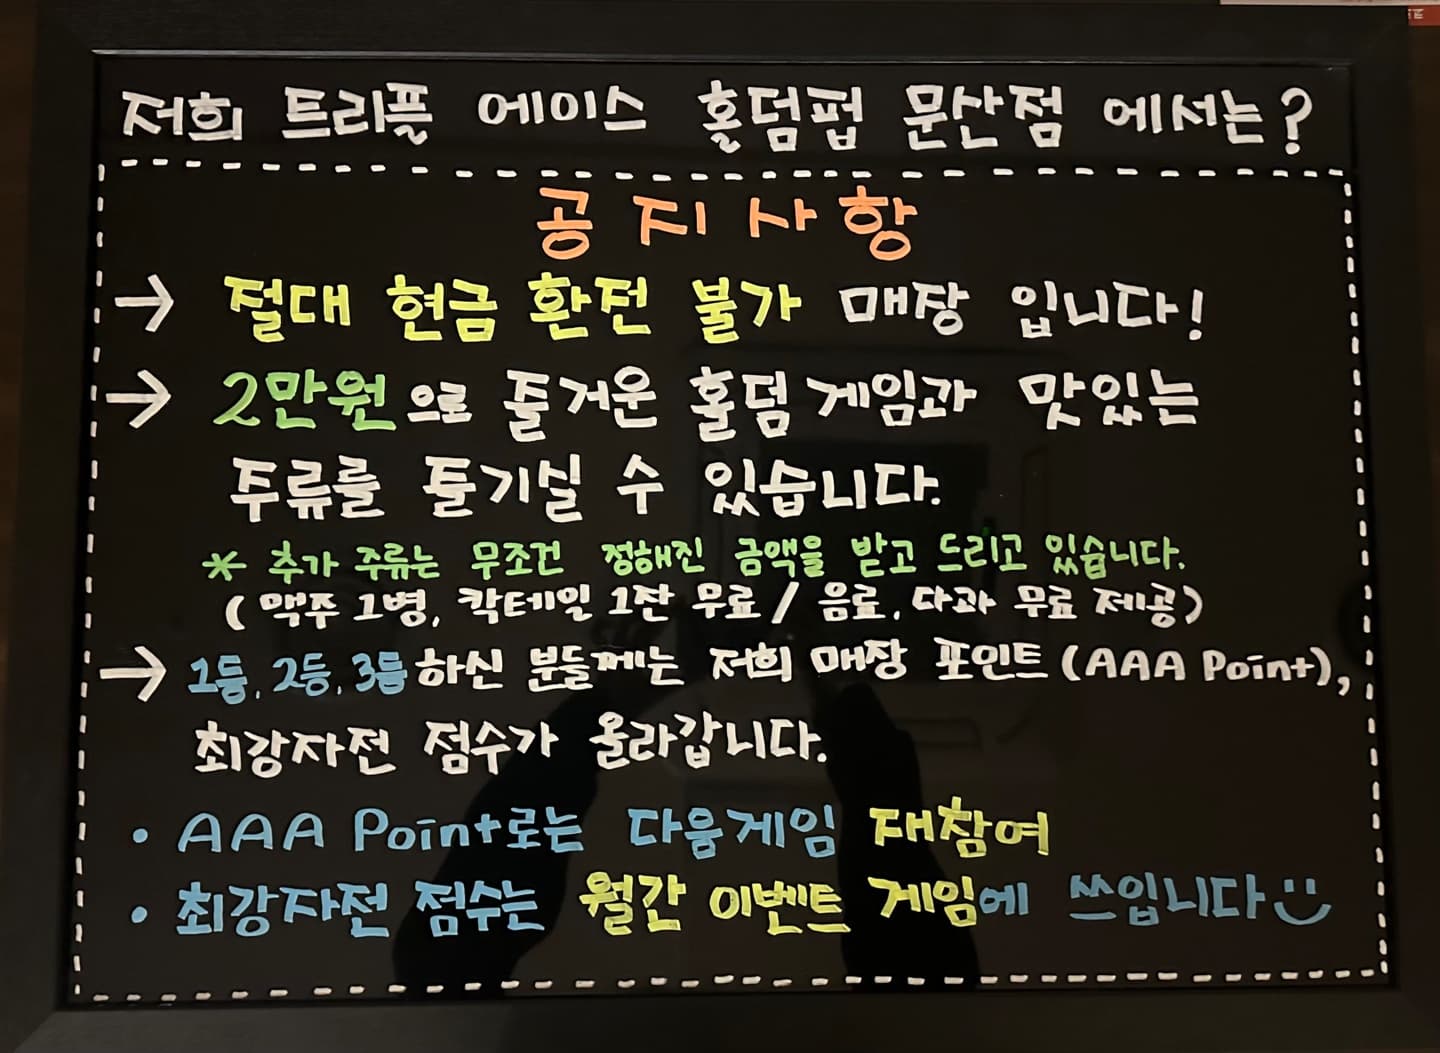 저희 트리플 에이스 홀덤펍 문산점 에서는?
공지사항
→ 절대 현금 환전 불가 매장 입니다!
→ 2만원으로 즐거운 홀덤 게임과 맛있는
주류를 즐기실 수 있습니다.
* 추가 주류는 무조건 정해진 금액을 받고 드리고 있습니다.
(맥주 1병, 칵테일 1잔 무료 / 음료, 다과 무료 제공)
→ 1등, 2등, 3등 하신 분들께는 저희 매장 포인트 (AAA Point),
최강자전 점수가 올라갑니다.
• AAA Point로는 다음게임 재참여
• 최강자전 점수는 월간 이벤트 게임에 쓰입니다